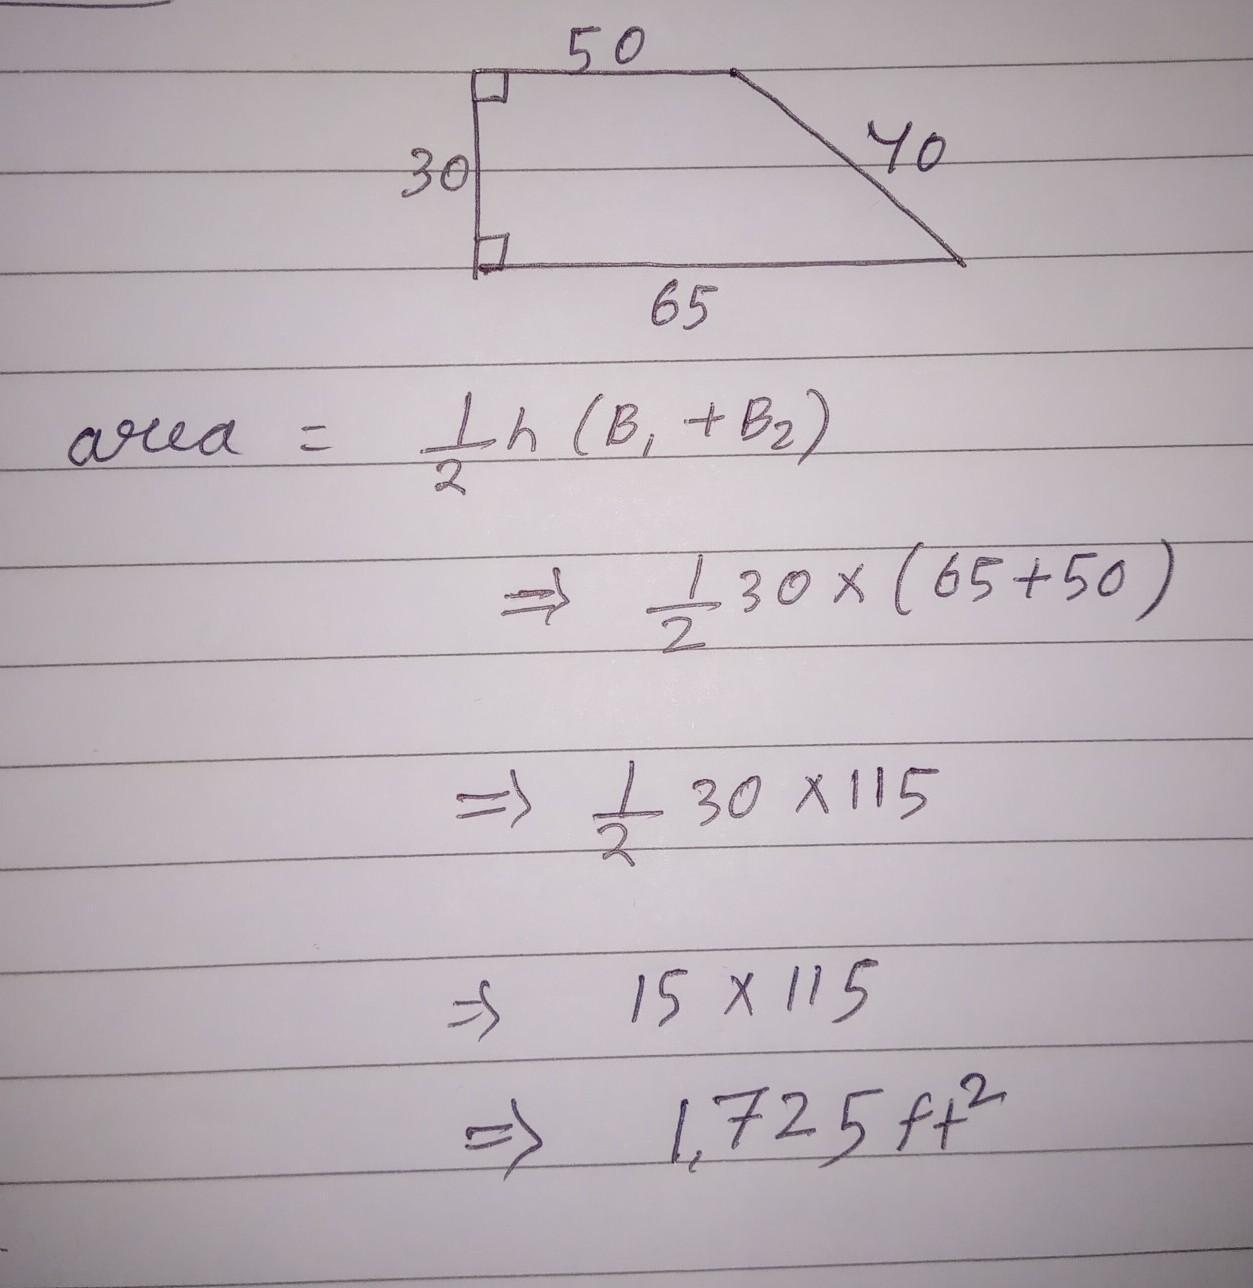 50
40
30
65
area = 1/2 h (B₁ + B₂)
⇒ 1/2 30 × (65+50)
⇒ 1/2 30 × 115
⇒ 15 × 115
⇒ 1,725 ft²